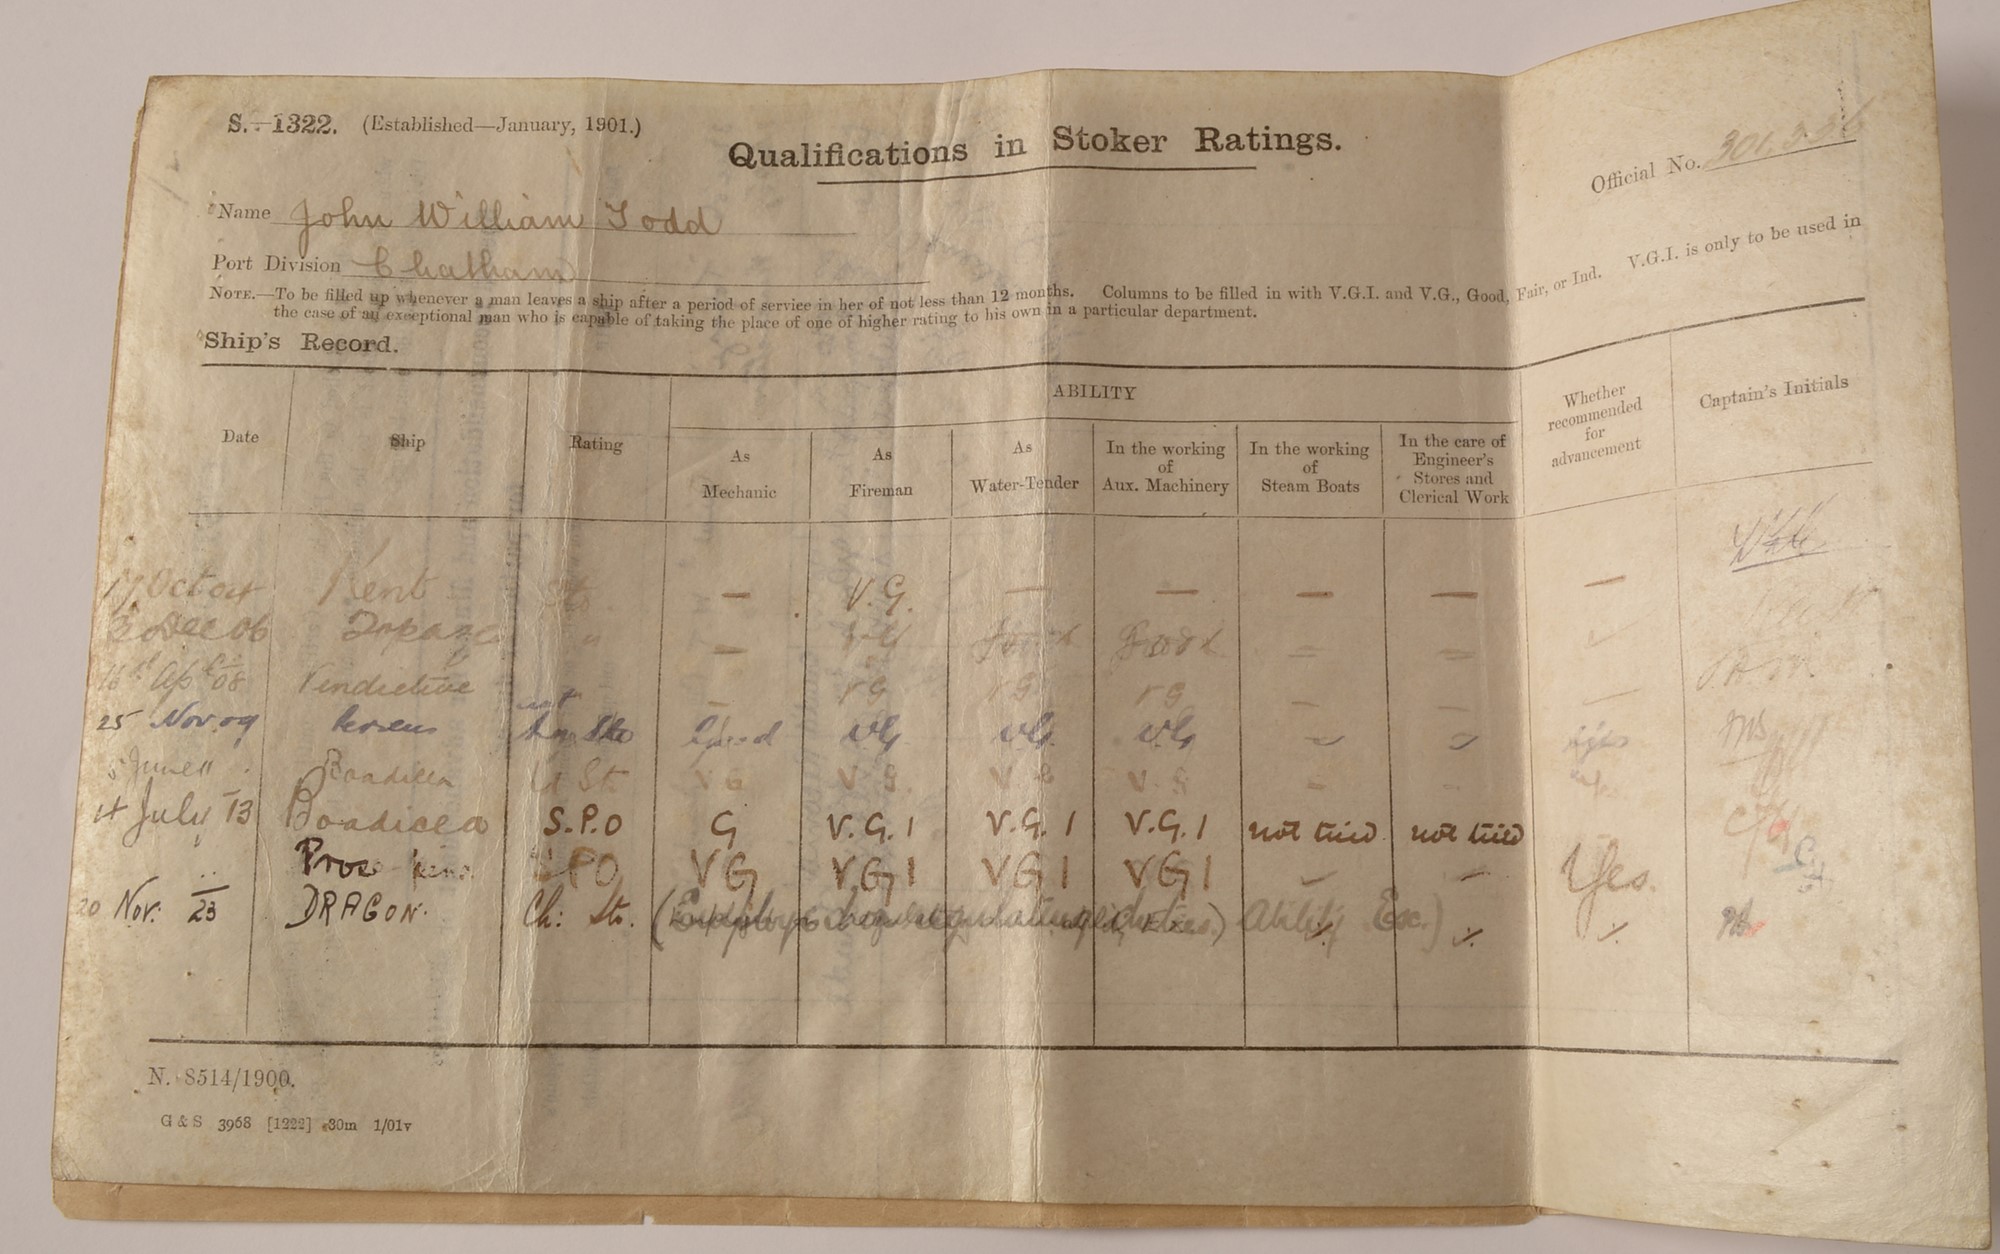 S.–1322. (Established—January, 1901.)
Qualifications in Stoker Ratings.
Official No.
Name John William Todd
Port Division Chatham
NOTE.—To be filled up whenever a man leaves a ship after a period of service in her of not less than 12 months. Columns to be filled in with V.G.I. and V.G., Good, Fair, or Ind. V.G.I. is only to be used in
the case of an exceptional man who is capable of taking the place of one of higher rating to his own in a particular department.
Ship's Record.
Date Ship Rating ABILITY Whether recommended for advancement Captain's Initials
As Mechanic As Fireman As Water-Tender In the working of Aux. Machinery In the working of Steam Boats In the care of Engineer's Stores and Clerical Work
17 Oct 04 Kent Sto — V.G. — — — — —
Dec 06 Topaze " — Good Good
16th Apl 08 Vindictive — VG VG VG — — —
25 Nov. 09 Good VG VG VG yes
June 11 Boadicea St VG V.G. V.G V.G yes
14 July 13 Boadicea S.P.O G V.G.1 V.G.1 V.G.1 not tried not tried
" SPO VG VG1 VG1 VG1 Yes.
20 Nov: 23 DRAGON. Ch: Sto. Ability Exc.)
N. 8514/1900.
G & S 3968 [1222] 30m 1/01v